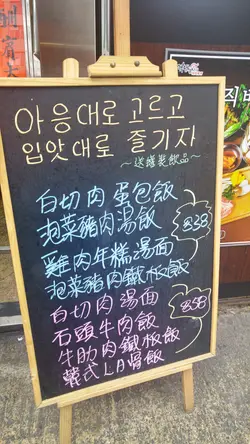 아응대로 고르고
입맛대로 즐기자
~送樽裝飲品~
白切肉蛋包飯
泡菜豬肉湯飯
$58
雞肉年糕湯面
泡菜豬肉鐵板飯
白切肉湯面
$58
石頭牛肉飯
牛肋肉鐵板飯
韓式LA骨飯